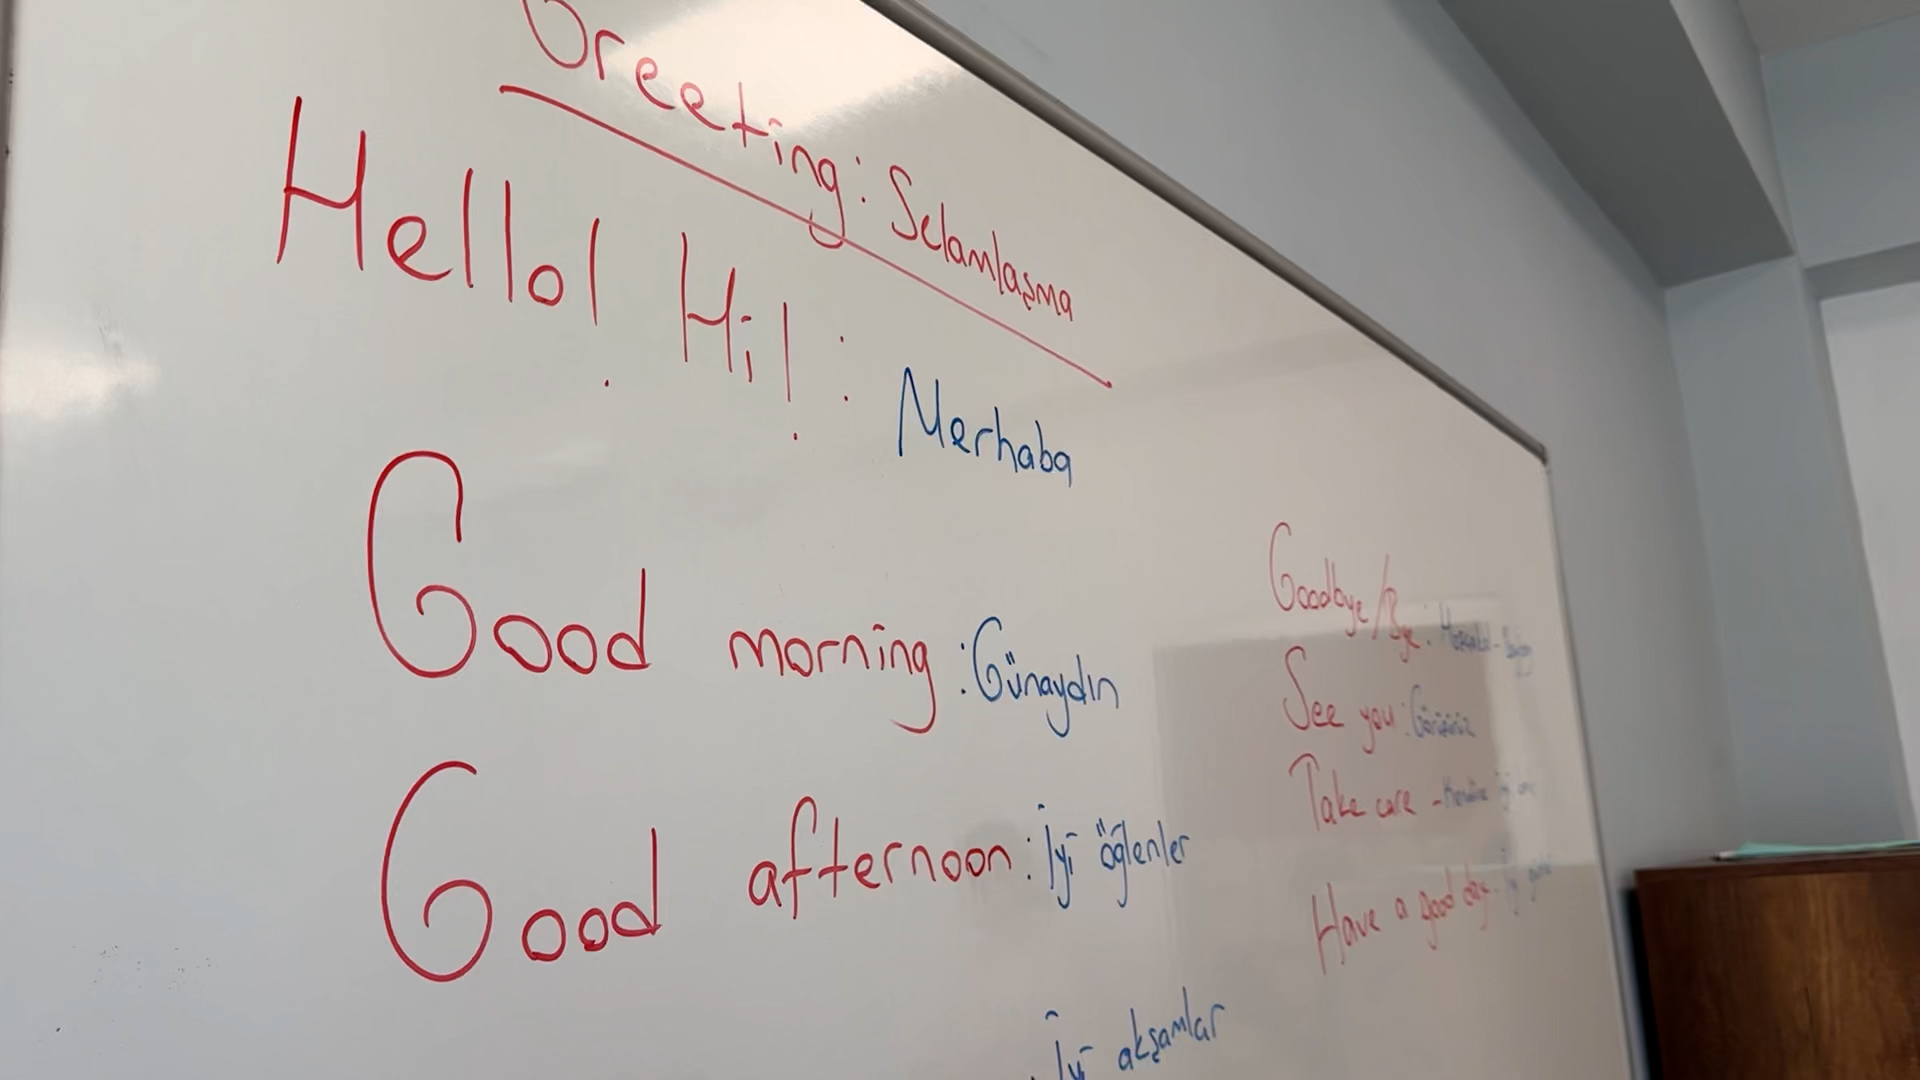 Greeting: Selamlaşma
Hello! Hi! : Merhaba
Good morning : Günaydın
Good afternoon : İyi öğlenler
İyi akşamlar
Goodbye/Bye :
See you : Görüşürüz
Take care -
Have a good day -